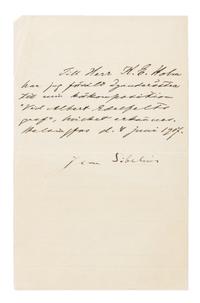 Till Herr K. E. Holm
har jag försålt äganderätten
till min körkomposition
"Vid Albert Edelfelts
graf", hvilket erkännes.
Helsingfors d. 4 juni 1917.
Jean Sibelius